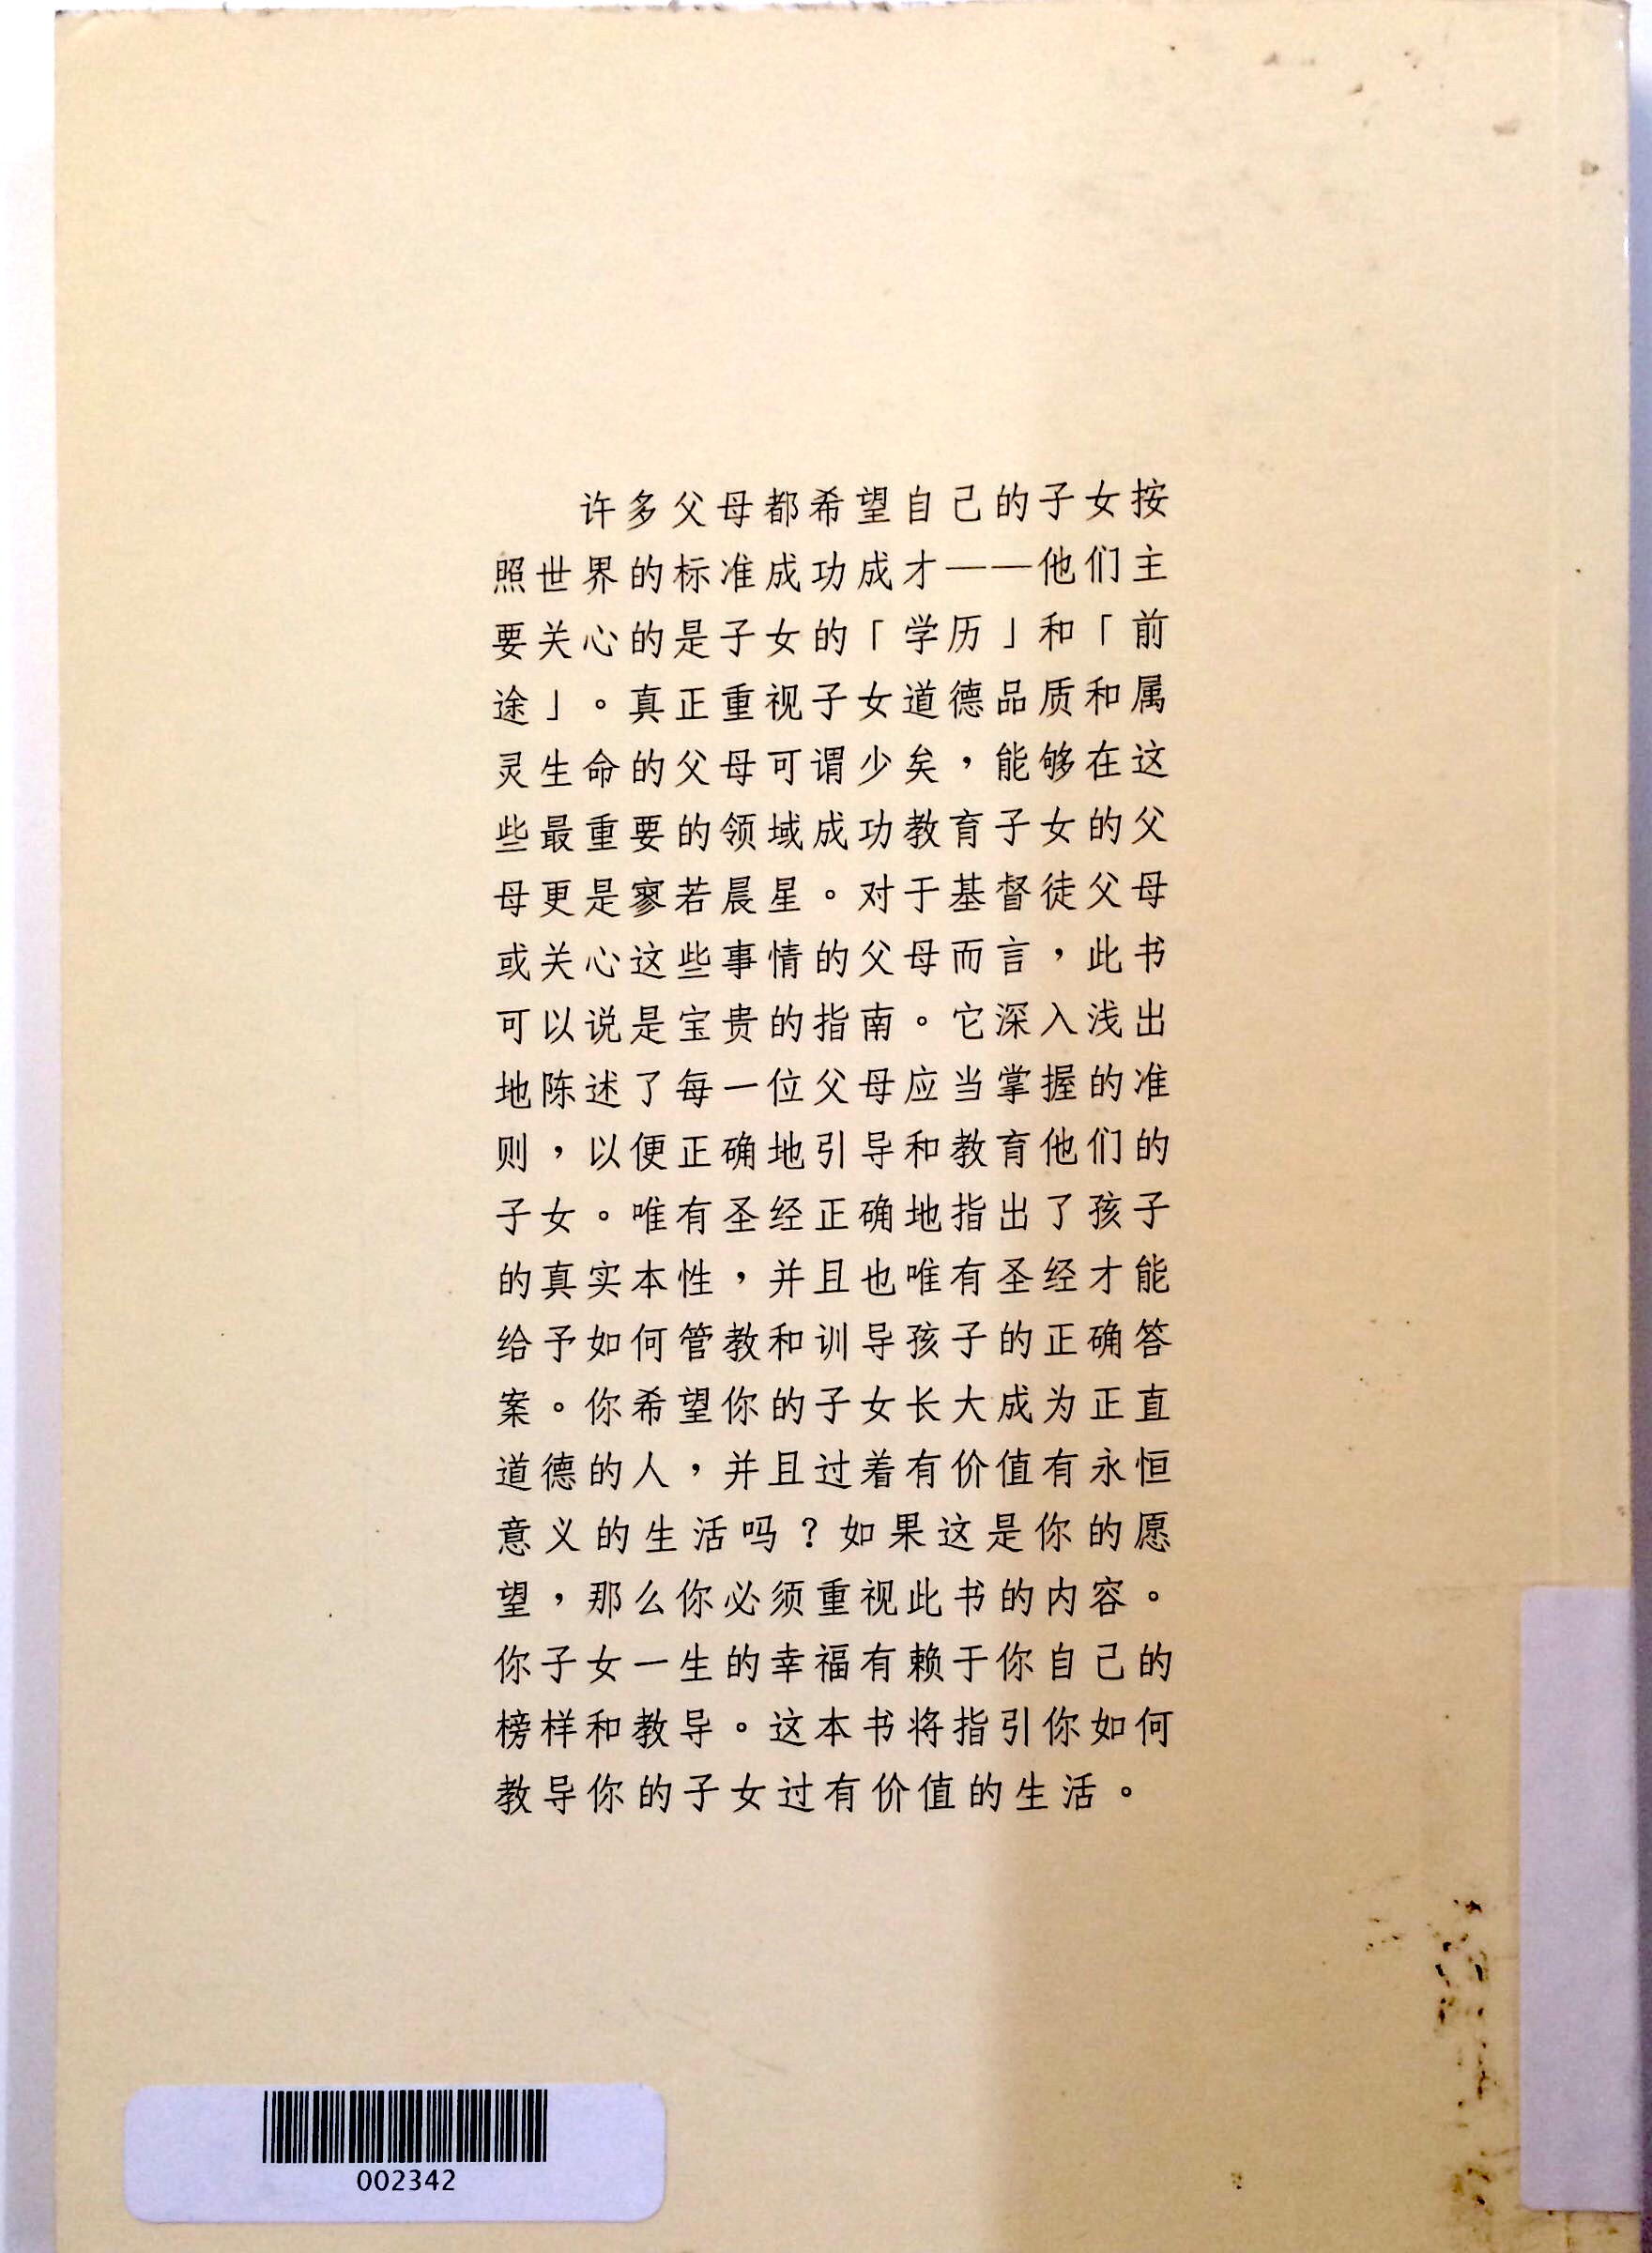 许多父母都希望自己的子女按
照世界的标准成功成才——他们主
要关心的是子女的「学历」和「前
途」。真正重视子女道德品质和属
灵生命的父母可谓少矣，能够在这
些最重要的领域成功教育子女的父
母更是寥若晨星。对于基督徒父母
或关心这些事情的父母而言，此书
可以说是宝贵的指南。它深入浅出
地陈述了每一位父母应当掌握的准
则，以便正确地引导和教育他们的
子女。唯有圣经正确地指出了孩子
的真实本性，并且也唯有圣经才能
给予如何管教和训导孩子的正确答
案。你希望你的子女长大成为正直
道德的人，并且过着有价值有永恒
意义的生活吗？如果这是你的愿
望，那么你必须重视此书的内容。
你子女一生的幸福有赖于你自己的
榜样和教导。这本书将指引你如何
教导你的子女过有价值的生活。
002342